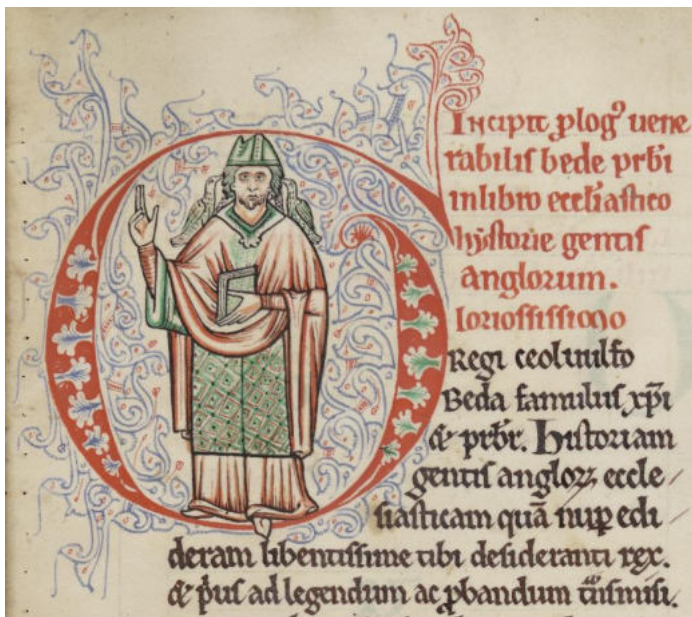 Incipit plog⁹ uene
rabilis bede prb̄i
in libro eccl̄iastico
hystorie gentis
anglorum.
Gloriosissimo
Regi ceoluulfo
Beda famulus xp̄i
& prb̄r. Historiam
gentis angloꝝ eccle
siasticam quā nuꝑ edi
deram libentissime tibi desideranti rex.
& p̓us ad legendum ac ꝓbandum